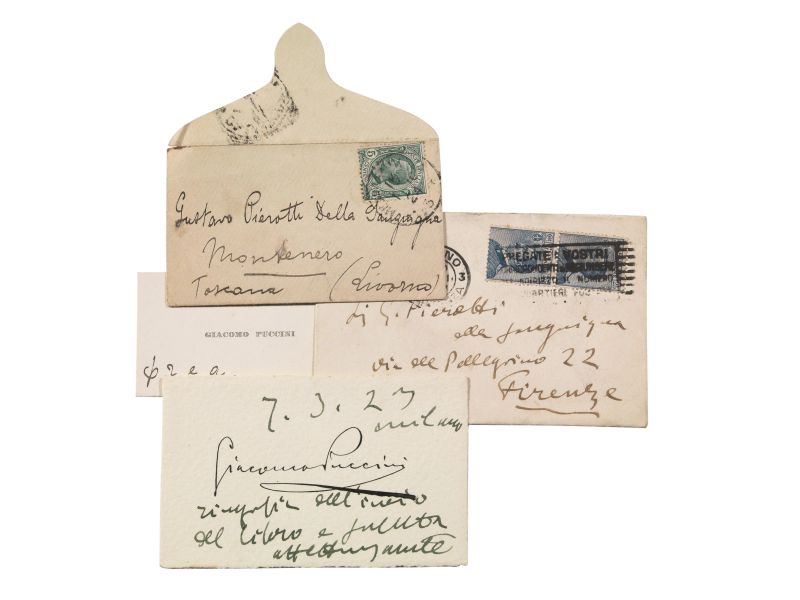 Gustavo Pierotti Della Sanguigna
Montenero
Toscana (Livorno)
NO 3
PREGATE I VOSTRI
CORRISPONDENTI
INDIRIZZO IL NUMERO
QUARTIERE POS
G. Pierotti
della Sanguigna
via del Pellegrino 22
Firenze
GIACOMO PUCCINI
7. 3. 23
Milano
Giacomo Puccini
ringrazia dell'invio
del libro e saluta
affettuosamente